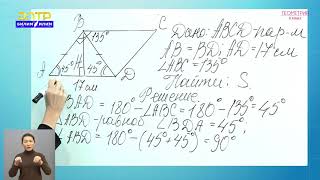 ЭЛТР
БИЛИМ ИЛИМ
ГЕОМЕТРИЯ
B
C
135°
A
45°
H
45°
D
17 см
Дано: ABCD пар-м
AB = BD; AD = 17 см
∠ABC = 135°
Найти: S.
Решение
∠BAD = 180° - ∠ABC = 180° - 135° = 45°
△ABD - равноб ∠BDA = 45°,
∠ABD = 180° - (45° + 45°) = 90°